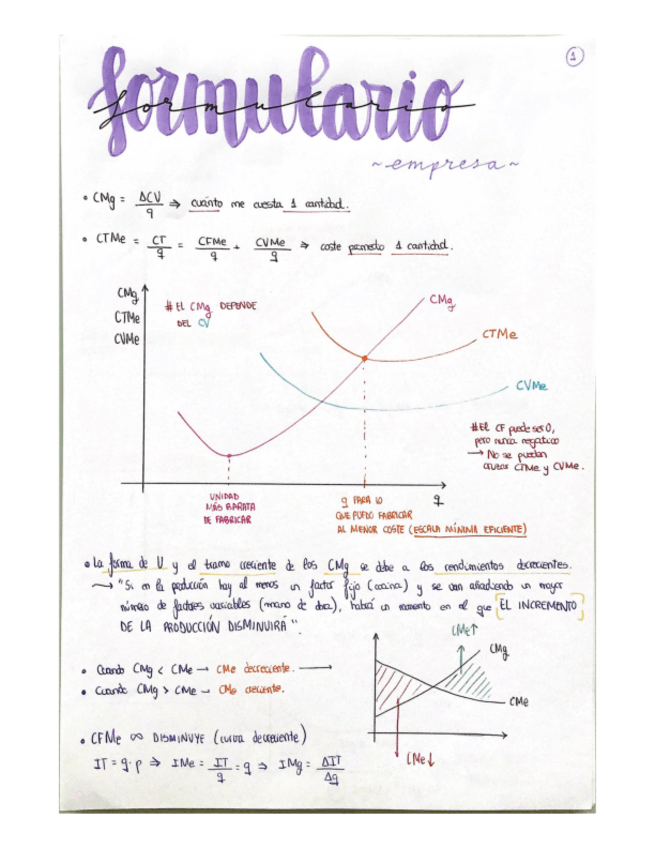 1
formulario
formulario
~empresa~
• CMg = ΔCV/q ⇒ cuánto me cuesta 1 cantidad.
• CTMe = CT/q = CFMe/q + CVMe/q ⇒ coste promedio 1 cantidad.
CMg
CTMe
CVMe
# EL CMg DEPENDE
DEL CV
CMg
CTMe
CVMe
#El CF puede ser 0,
pero nunca negativo
→ No se pueden
cruzar CTMe y CVMe.
q
UNIDAD
MÁS BARATA
DE FABRICAR
q PARA LO
QUE PUEDO FABRICAR
AL MENOR COSTE (ESCALA MÍNIMA EFICIENTE)
• La forma de U y el tramo creciente de los CMg se debe a los rendimientos decrecientes.
→ "Si en la producción hay al menos un factor fijo (cocina) y se van añadiendo un mayor
número de factores variables (mano de obra), habrá un momento en el que [EL INCREMENTO
DE LA PRODUCCIÓN DISMINUIRÁ".]
• Cuando CMg < CMe → CMe decreciente. →
• Cuando CMg > CMe → CMe creciente.
CMe↑
CMg
CMe
CMe↓
• CFMe ∞ DISMINUYE (curva decreciente)
IT = q · p ⇒ IMe = IT/q = q ⇒ IMg = ΔIT/Δq